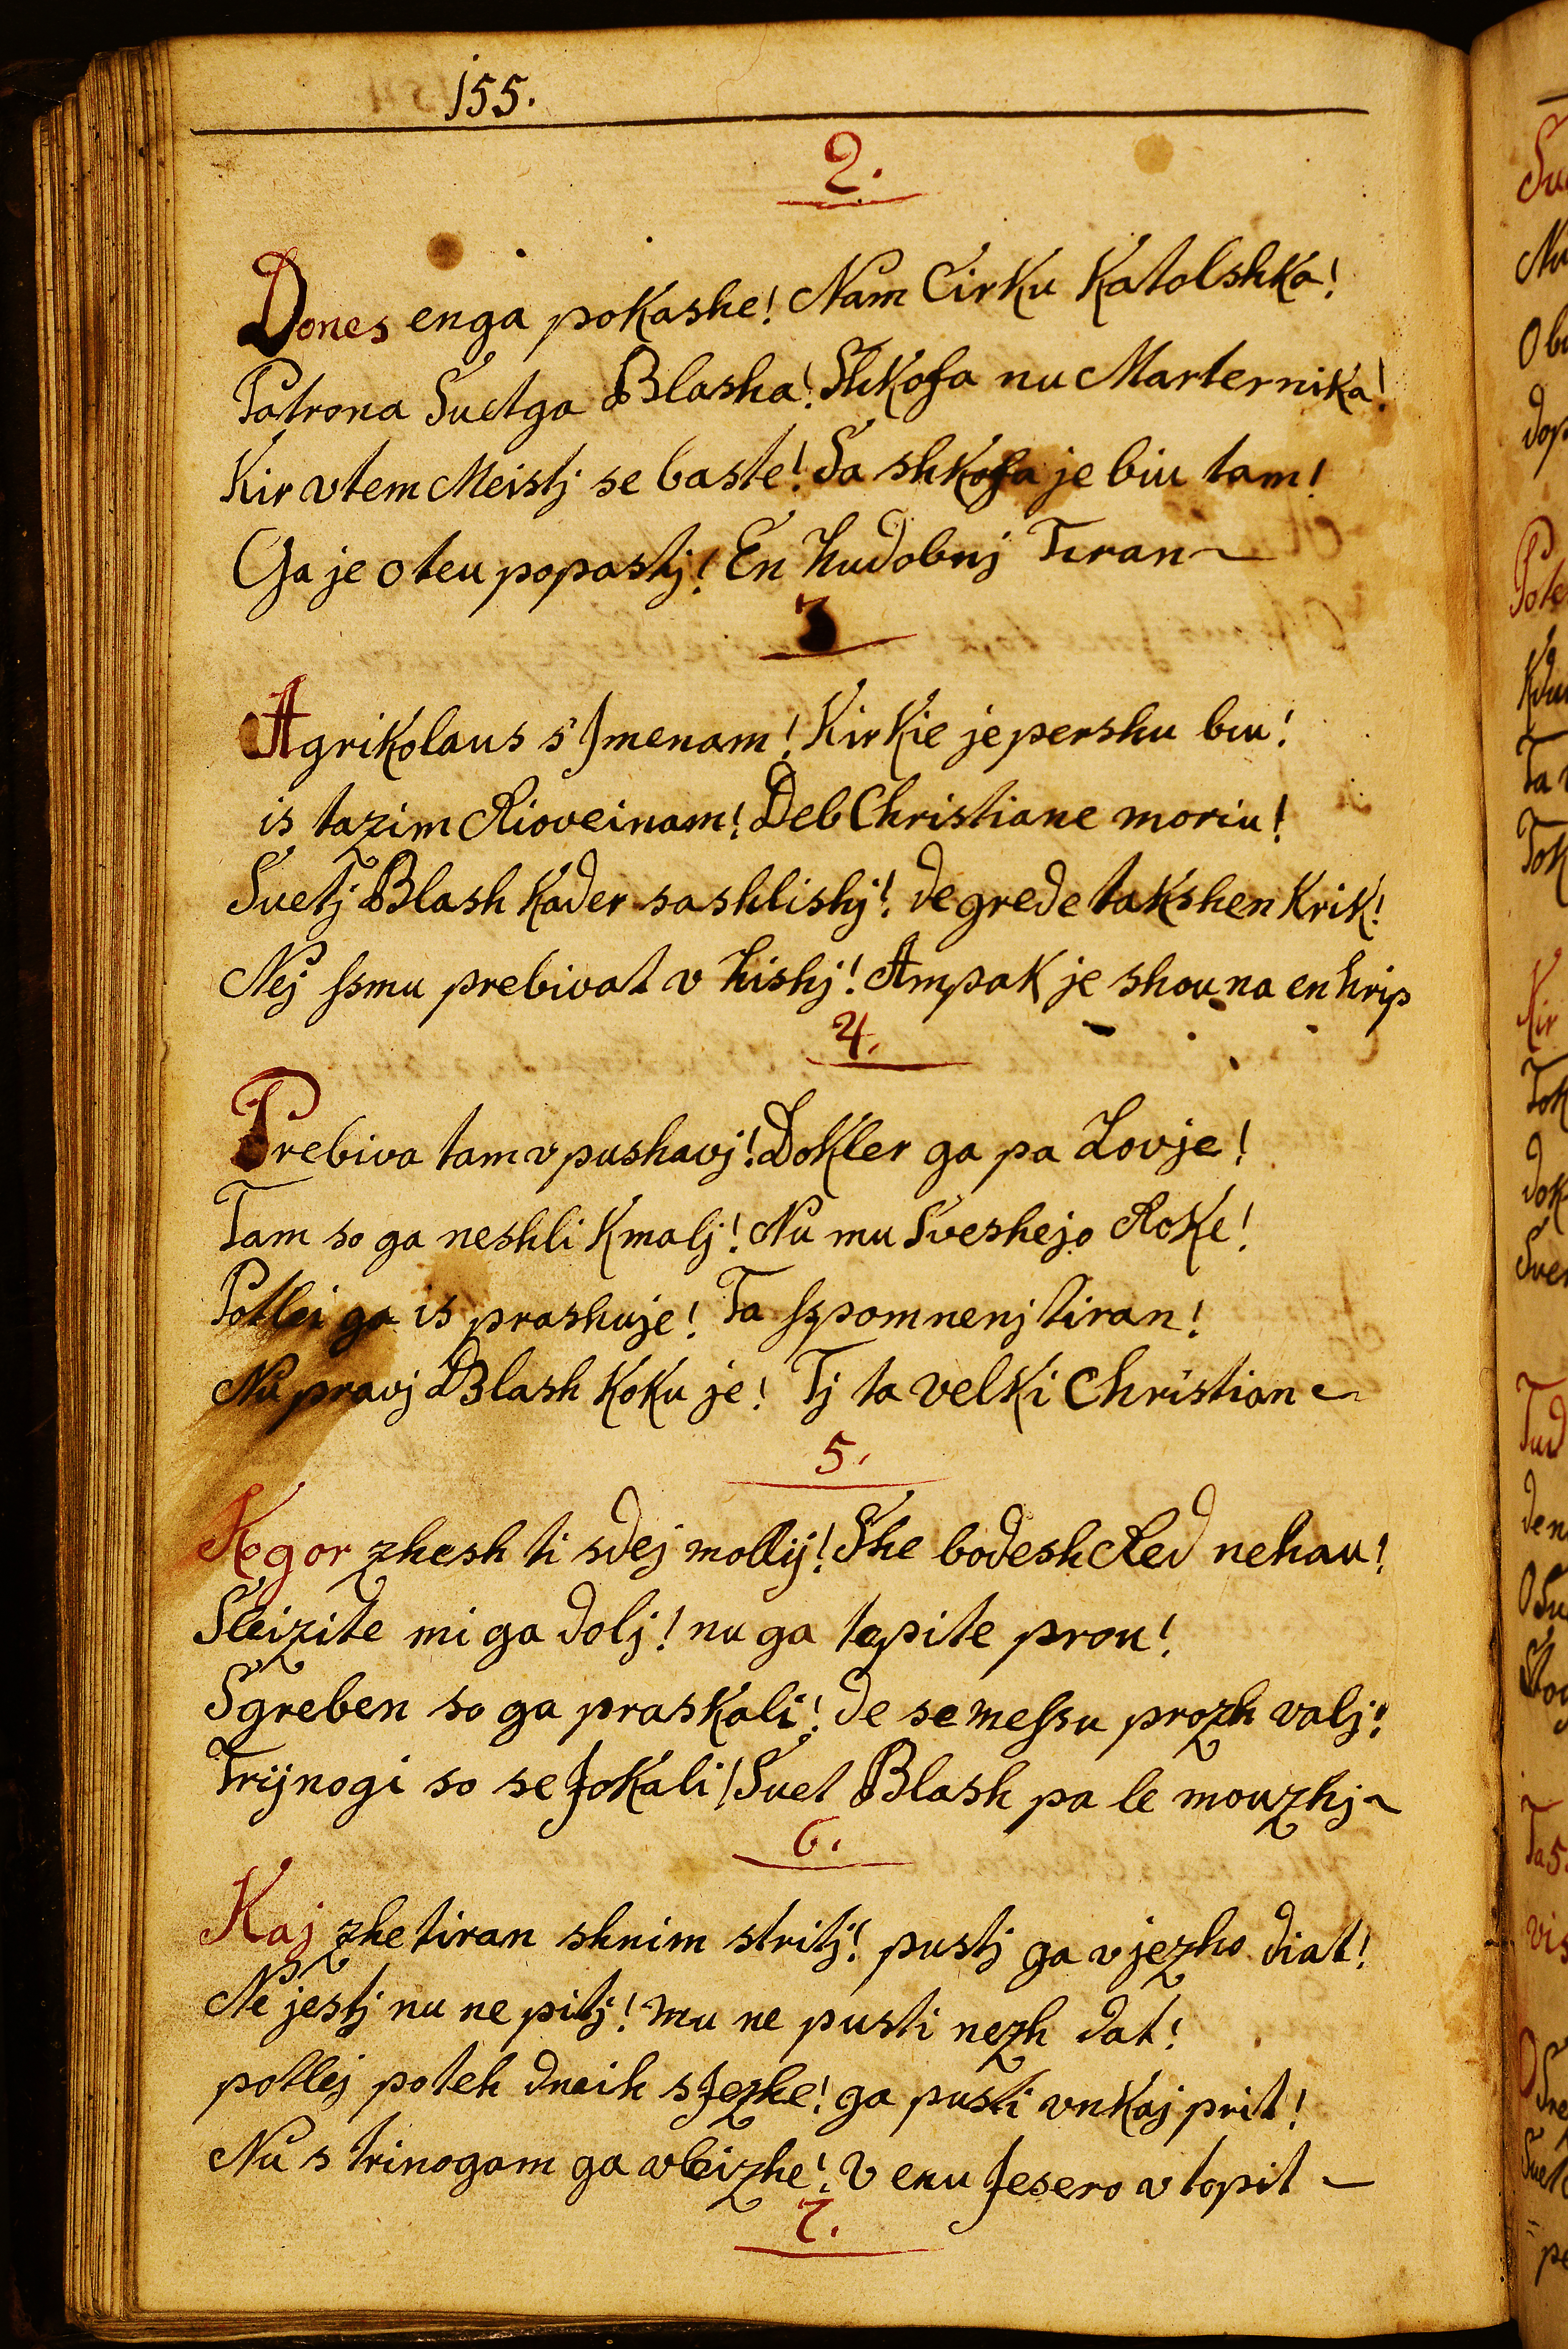 155.
2.
Dones enga pokashe! Nam Cirku Katolshka!
Patrona Suetga Blasha! Shkofa nu Marternika!
Kir vtem Meistj se baste! Sa shkofa je biu tam!
Ga je oteu popastj! En hudobnj Tiran
3
Agrikolaus s Jmenam! Kir kie je pershu biu!
is tazim Rioveinam! Deb Christiane moriu!
Suetj Blash kader sashlishj! de grede takshen krik!
Nej ſsmu prebivat v hishj! Ampak je shou na en hrip
4.
Prebiva tam v pushavj! Dokler ga pa Lovje!
Tam so ga neshli kmalj! Nu mu Sveshejo Roke!
Potlei ga is prashuje! Ta ſspomnenj tiran!
Nu pravj Blash koku je! Tj ta velki Christian
5.
Kogor zhesh ti sdej mollij! She bodesh Red nehau!
Sleizite mi ga dolj! nu ga tepite prou!
Sgreben so ga praskali! de se meſsu prozh valj!
Trijnogi so se Jokali! Suet Blash pa le mouzhj
6.
Kaj zhe tiran shnim stritj! pustj ga v jezho diat!
Ne jestj nu ne pitj! mu ne pusti nezh dat!
potlej poteh dneih s Jezhe! ga pusti vnkaj prit!
Nu s trinogam ga vleizhe! V enu Jesero vtopit
7.